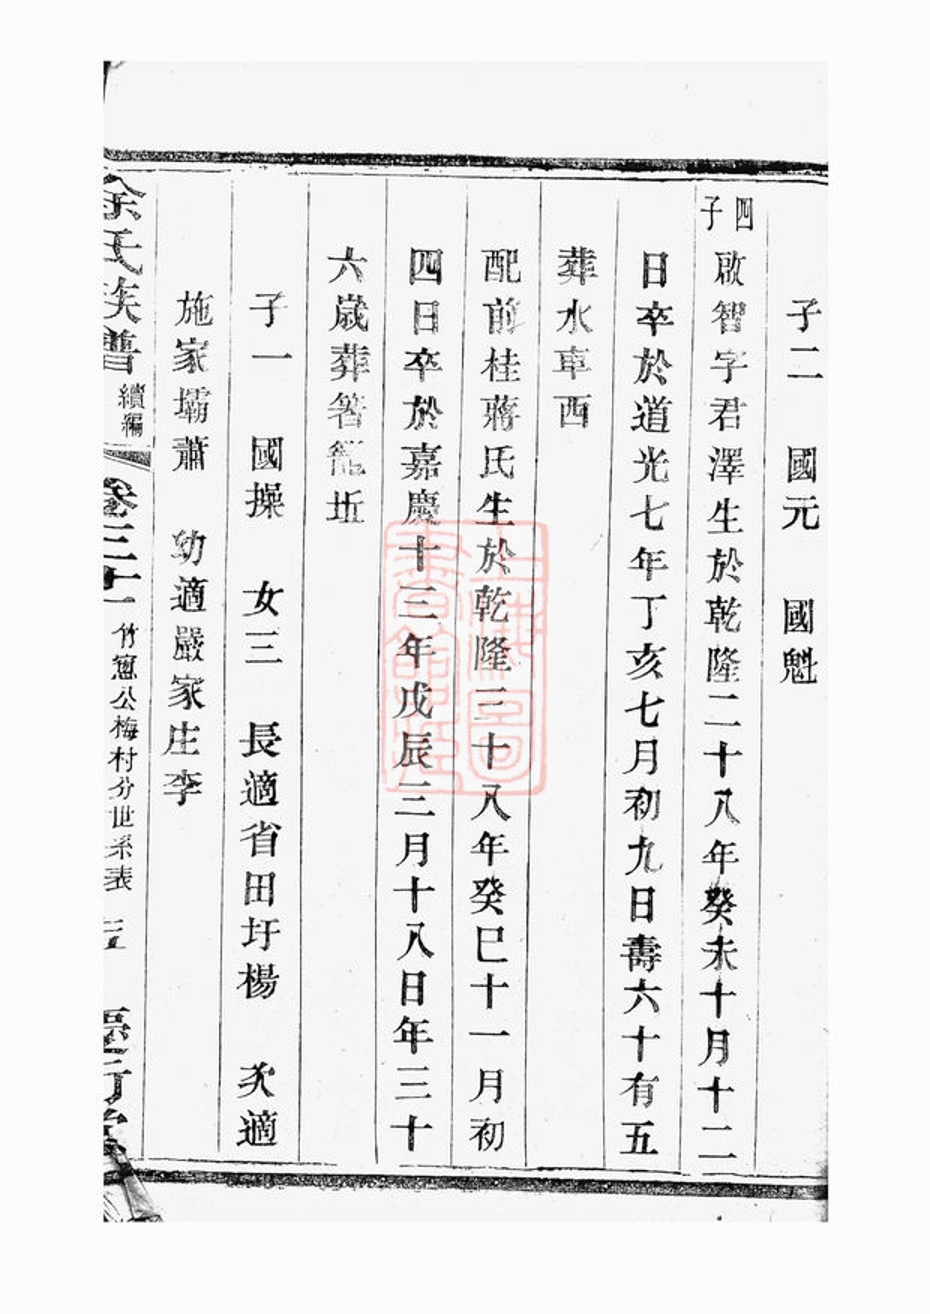 子二　國元　國魁
四子
啟智字君澤生於乾隆二十八年癸未十月十二
日卒於道光七年丁亥七月初九日壽六十有五
葬水車西
配前桂蔣氏生於乾隆三十八年癸巳十一月初
四日卒於嘉慶十三年戊辰三月十八日年三十
六歲葬箬𥫱坵
子一　國操　女三　長適省田圩楊　次適
施家壩蕭　幼適嚴家庄李
余氏族譜
續編
卷三十一
竹窻公梅村分世系表
上海圖書館藏